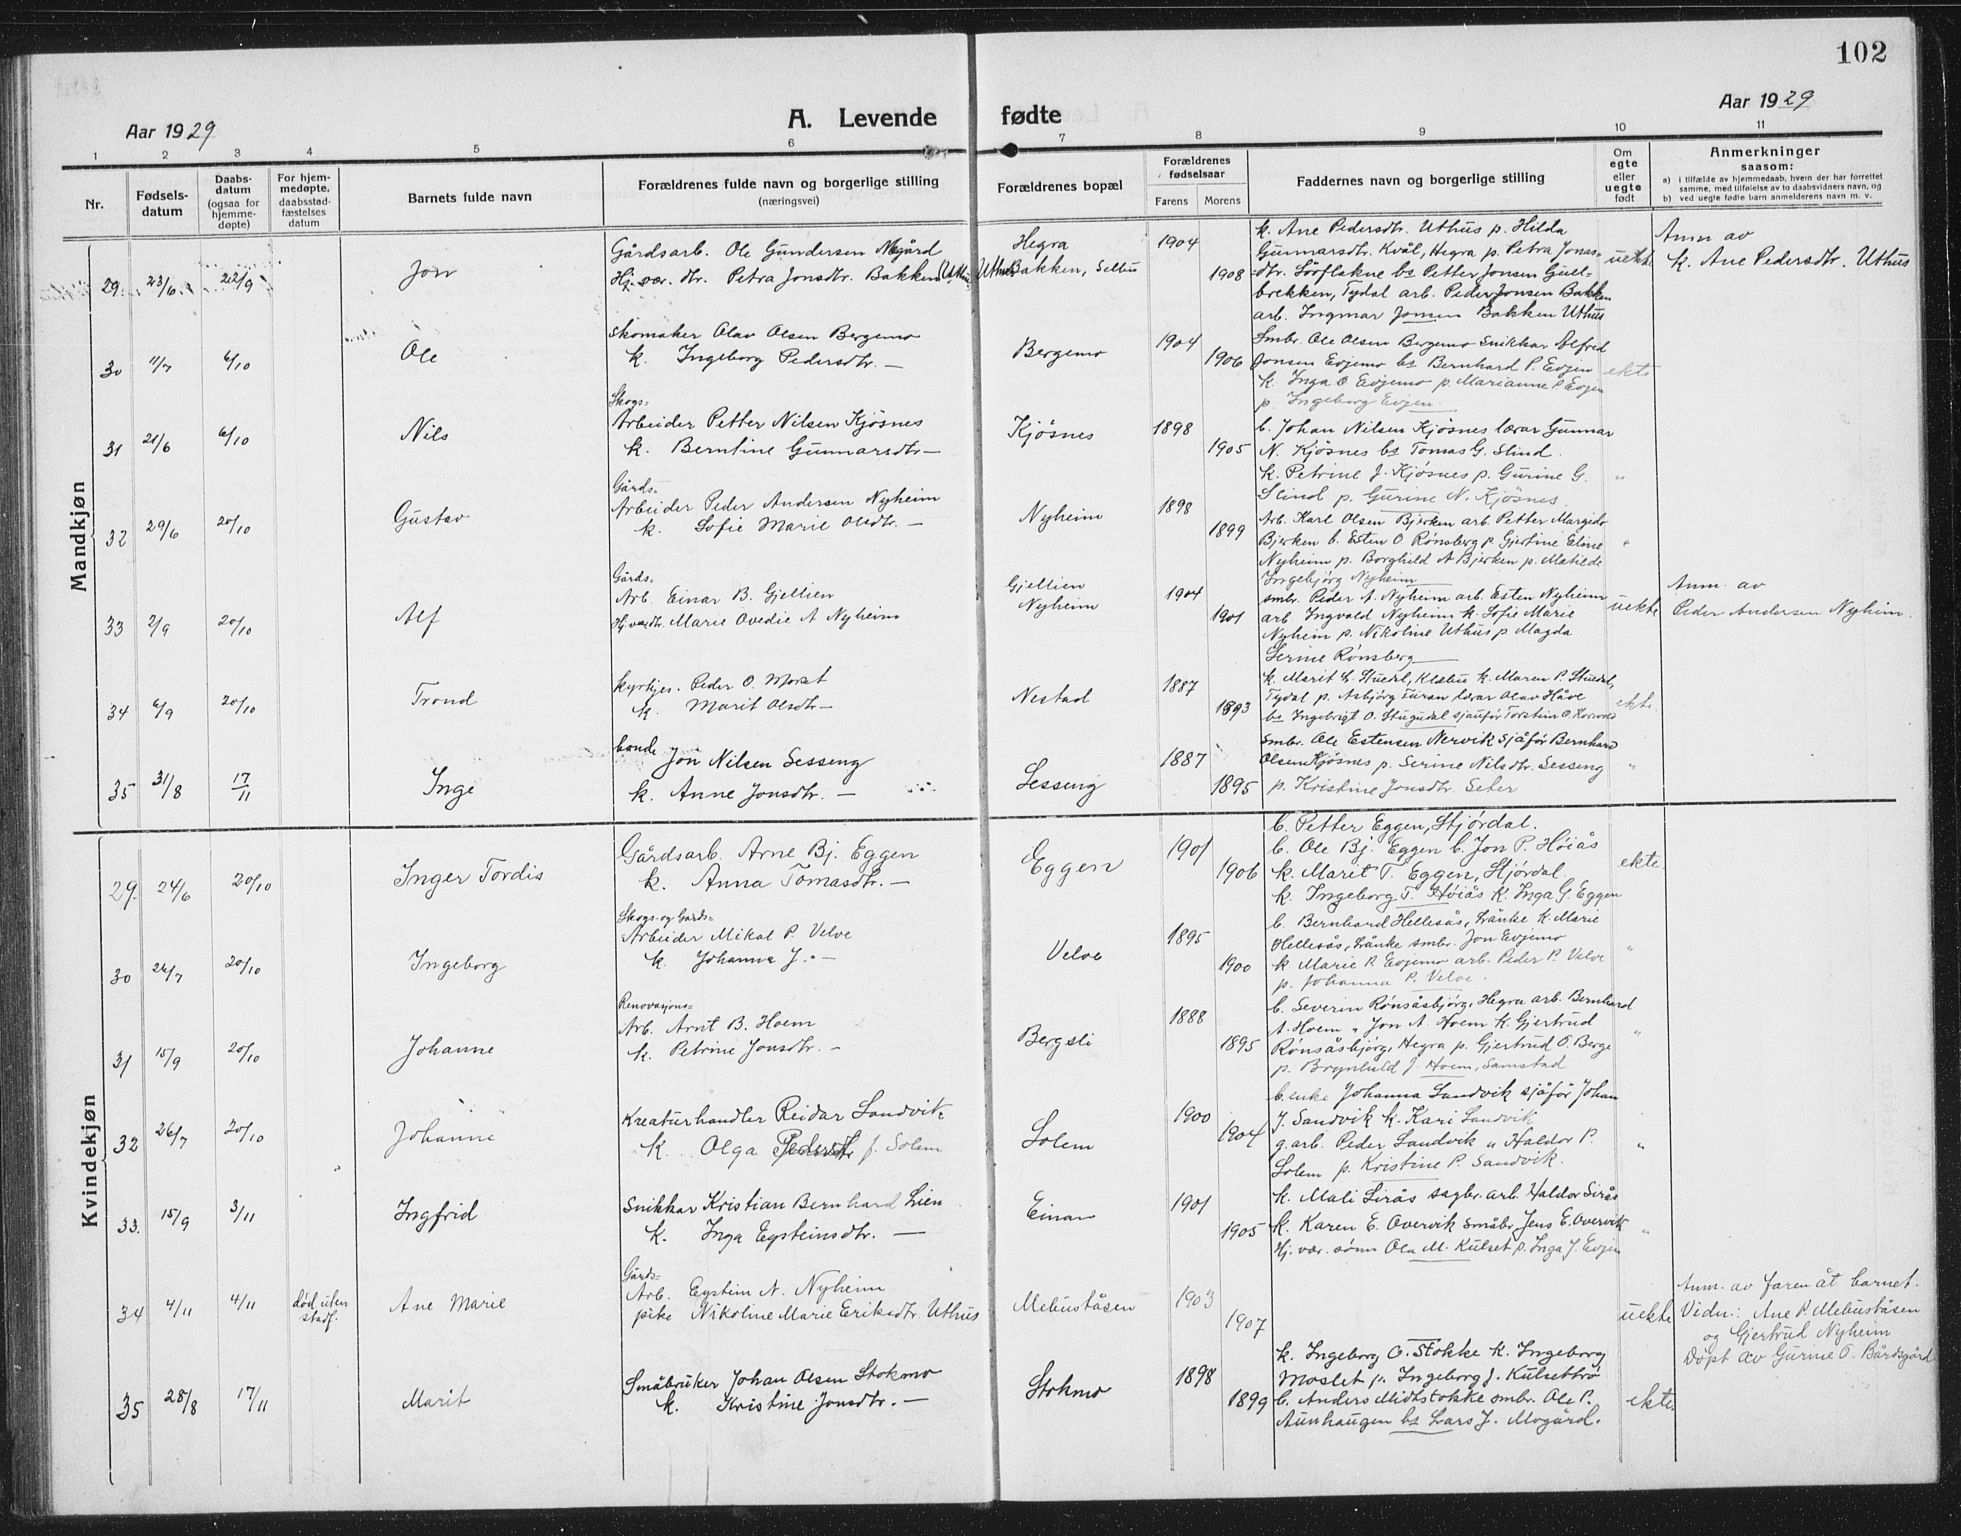 102
Aar 1929
A. Levende fødte
Aar 1929
1 2 3 4 5 6 7 8 9 10 11
Nr.
Fødsels-
datum
Daabs-
datum
(ogsaa for
hjemme-
døpte)
For hjem-
medøpte,
daabsstad-
fæstelses
datum
Barnets fulde navn
Forældrenes fulde navn og borgerlige stilling
(næringsvei)
Forældrenes bopæl
Forældrenes
fødselsaar
Farens Morens
Faddernes navn og borgerlige stilling
Om
egte
eller
uegte
født
Anmerkninger
saasom:
a) i tilfælde av hjemmedaab, hvem der har forrettet
samme, med tilføielse av to daabsvidners navn, og
b) ved uegte fødte barn anmelderens navn m. v.
Mandkjøn
29 23/6 22/9 Jon
Gårdsarb. Ole Gundersen Megård
Hj. vær. dtr. Petra Jonsdtr. Bakken Uthus
Hegra
Bakken, Selbu
1904
1908
k. Ane Pedersdtr. Uthus p. Hilda
Gunnarsdtr. Kvål, Hegra p. Petra Jonas-
dtr. Sörflakne bs Petter Jonsen Guel-
brekken, Tydal arb. Peder Jonsen Bakken
arb. Ingmar Jonsen Bakken Uthus
uekte
Anm av
k. Ane Pedersdtr. Uthus
30 11/7 6/10 Ole
Skomaker Olav Olsen Bergemo
k. Ingeborg Pedersdtr. —
Bergemo
1904
1906
Smbr. Ole Olsen Bergemo Snikkar Alfred
Jonsen Evjemo bs Bernhard P. Evjen
k. Inga O Evjemo p. Marianne P. Evjen
p. Ingeborg Evjen.
ekte
31 21/6 6/10 Nils
Skogs=
Arbeider Petter Nilsen Kjösnes
k. Berntine Gunnarsdtr —
Kjösnes
1898
1905
b. Johan Nilsen Kjösnes lærar Gunnar
N. Kjösnes bs Tomas G. Slind.
k. Petrine J. Kjösnes p. Gurine G.
Slind p. Gurine N. Kjösnes
"
32 29/6 20/10 Gustav
Gårds=
Arbeider Peder Andersen Nyheim
k. Sofie Marie Olsdtr. —
Nyheim
1898
1899
Arb. Karl Olsen Bjerken arb. Petter Margido
Bjerken b. Esten O Rönsberg p. Gjertine Eline
Nyheim p. Borghild A Bjerken p. Matilde
Ingebjörg Nyheim
"
33 2/9 20/10 Alf
Gårds=
Arb. Einar B. Gjellien
Hj. vær dtr. Marie Ovedie A Nyheim
Gjellien
Nyheim
1904
1901
smbr. Peder A. Nyheim arb. Esten Nyheim
arb Ingvald Nyheim k. Sofie Marie
Nyheim p. Nikoline Uthus p Magda
Serine Rönsberg
uekte
Anm. av
Peder Andersen Nyheim.
34 6/9 20/10 Trond
Kyrkjes. Peder O. Morset
k. Marit Olsdtr —
Nestad
1887
1893
k. Marit Huedt, Klæbu k. Maren P. Stuedal,
Tydal p. Asbjörg Turan lærar Olav Håve
bs Ingebrigt O. Stugudal sjauför Torstein O.
ekte.
35 31/8 17/11 Inge
bonde Jon Nilsen Sesseng
k. Anne Jonsdtr. —
Sesseng
1887
1895
Smbr. Ole Estensen Nervik Sjåför Bernhard
Olsen Kjösnes p. Serine Nilsdtr. Sesseng
p. Kristine Jonsdtr. Seter
"
Kvindekjøn
29. 24/6 20/10 Inger Tordis
Gårdsarb. Arne Bj. Eggen
k. Anna Tomasdtr. —
Eggen
1901
1906
b. Petter Eggen, Stjördal.
b. Ole Bj. Eggen b. Jon P. Höiås
k. Marit T. Eggen, Stjördal
k. Ingeborg T. Höiås k. Inga G. Eggen
ekte
30 26/7 20/10 Ingeborg
Skogs- og Gårds=
Arbeider Mikal P. Velve
k. Johanna J. —
Velve
1895
1900
b. Bernhard Hellesås, Lånke k. Marie
Hellesås, Lånke smbr. Jon Evjemo
k. Marie P. Evjemo arb. Peder P. Velve
p. Johanna P. Velve.
"
31 15/9 20/10 Johanne
Renovasjons=
Arb. Arnt B. Hoem
k. Petrine Jonsdtr. —
Bergsli
1888
1895
b. Severin Rönsåsbjörg, Hegra arb. Bernhard
A. Hoem " Jon A. Hoem k. Gjertrud
Rönsåsbjörg, Hegra p. Gjertrud O. Berge
p. Brynhild J. Hoem, Samstad
"
32 26/7 20/10 Johanne
Kreaturhandler Reidar Sandvik
k. Olga Pedersdtr f. Solem
Solem
1900
1904
b. enke Johanna Sandvik sjåför Johan
J. Sandvik k. Kari Sandvik
g.arb. Peder Sandvik " Haldor P.
Solem p. Kristine P. Sandvik.
"
33. 15/9 3/11 Ingfrid
Snikkar Kristian Bernhard Lien
k. Inga Eysteinsdtr. —
Einan
1901
1905
k. Mali Sirås sagbr. arb. Haldor Sirås
k. Karen E. Overvik småbr. Jens E. Overvik
Hj. vær. sönn Ola M. Kulset p. Inga J. Evjen
"
34 4/11 4/11 död uten
stadf.
Ane Marie
Gårds=
Arb. Eystein N. Nyheim
pike Nikoline Marie Eriksdtr Uthus
Mebuståsen
1903
1907
uekte
Anm. av faren åt barnet.
Vidn: Ane P. Mebuståsen
og Gjertrud Nyheim
Döpt av Gurine O. Bårdsgård
35 28/8 17/11 Marit
Småbruker Johan Olsen Stokmo
k. Kristine Jonsdtr. —
Stokmo
1898
1899
k. Ingeborg O. Stokke k. Ingeborg
Moslet p. Ingeborg J. Kulsettrö
b. Anders Midtstokke smbr. Ole P.
Aunhaugen bs Lars J. Mogård.
ekte.